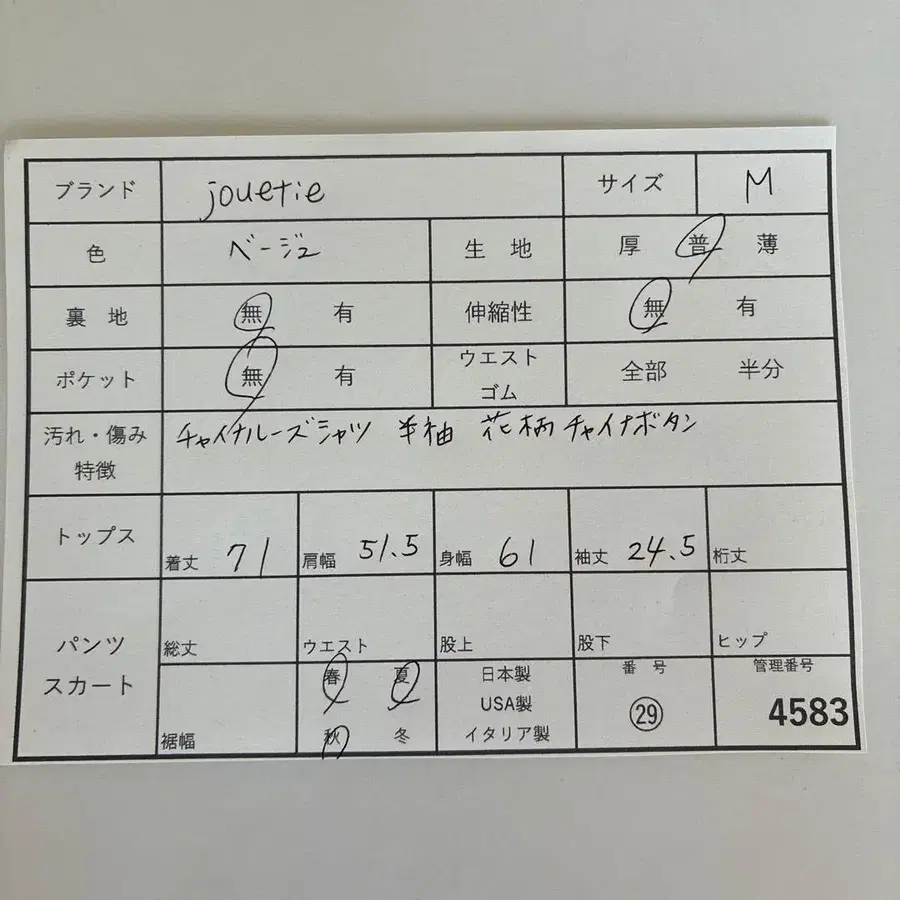 ブランド jouetie サイズ M
色 ベージュ 生地 厚 普 薄
裏地 無 有 伸縮性 無 有
ポケット 無 有 ウエスト
ゴム 全部 半分
汚れ・傷み
特徴 チャイナルーズシャツ 半袖 花柄 チャイナボタン
トップス 着丈 71 肩幅 51.5 身幅 61 袖丈 24.5 裄丈
パンツ
スカート 総丈 ウエスト 股上 股下 ヒップ
裾幅 春 夏
秋 冬
日本製
USA製
イタリア製
番号
㉙
管理番号
4583